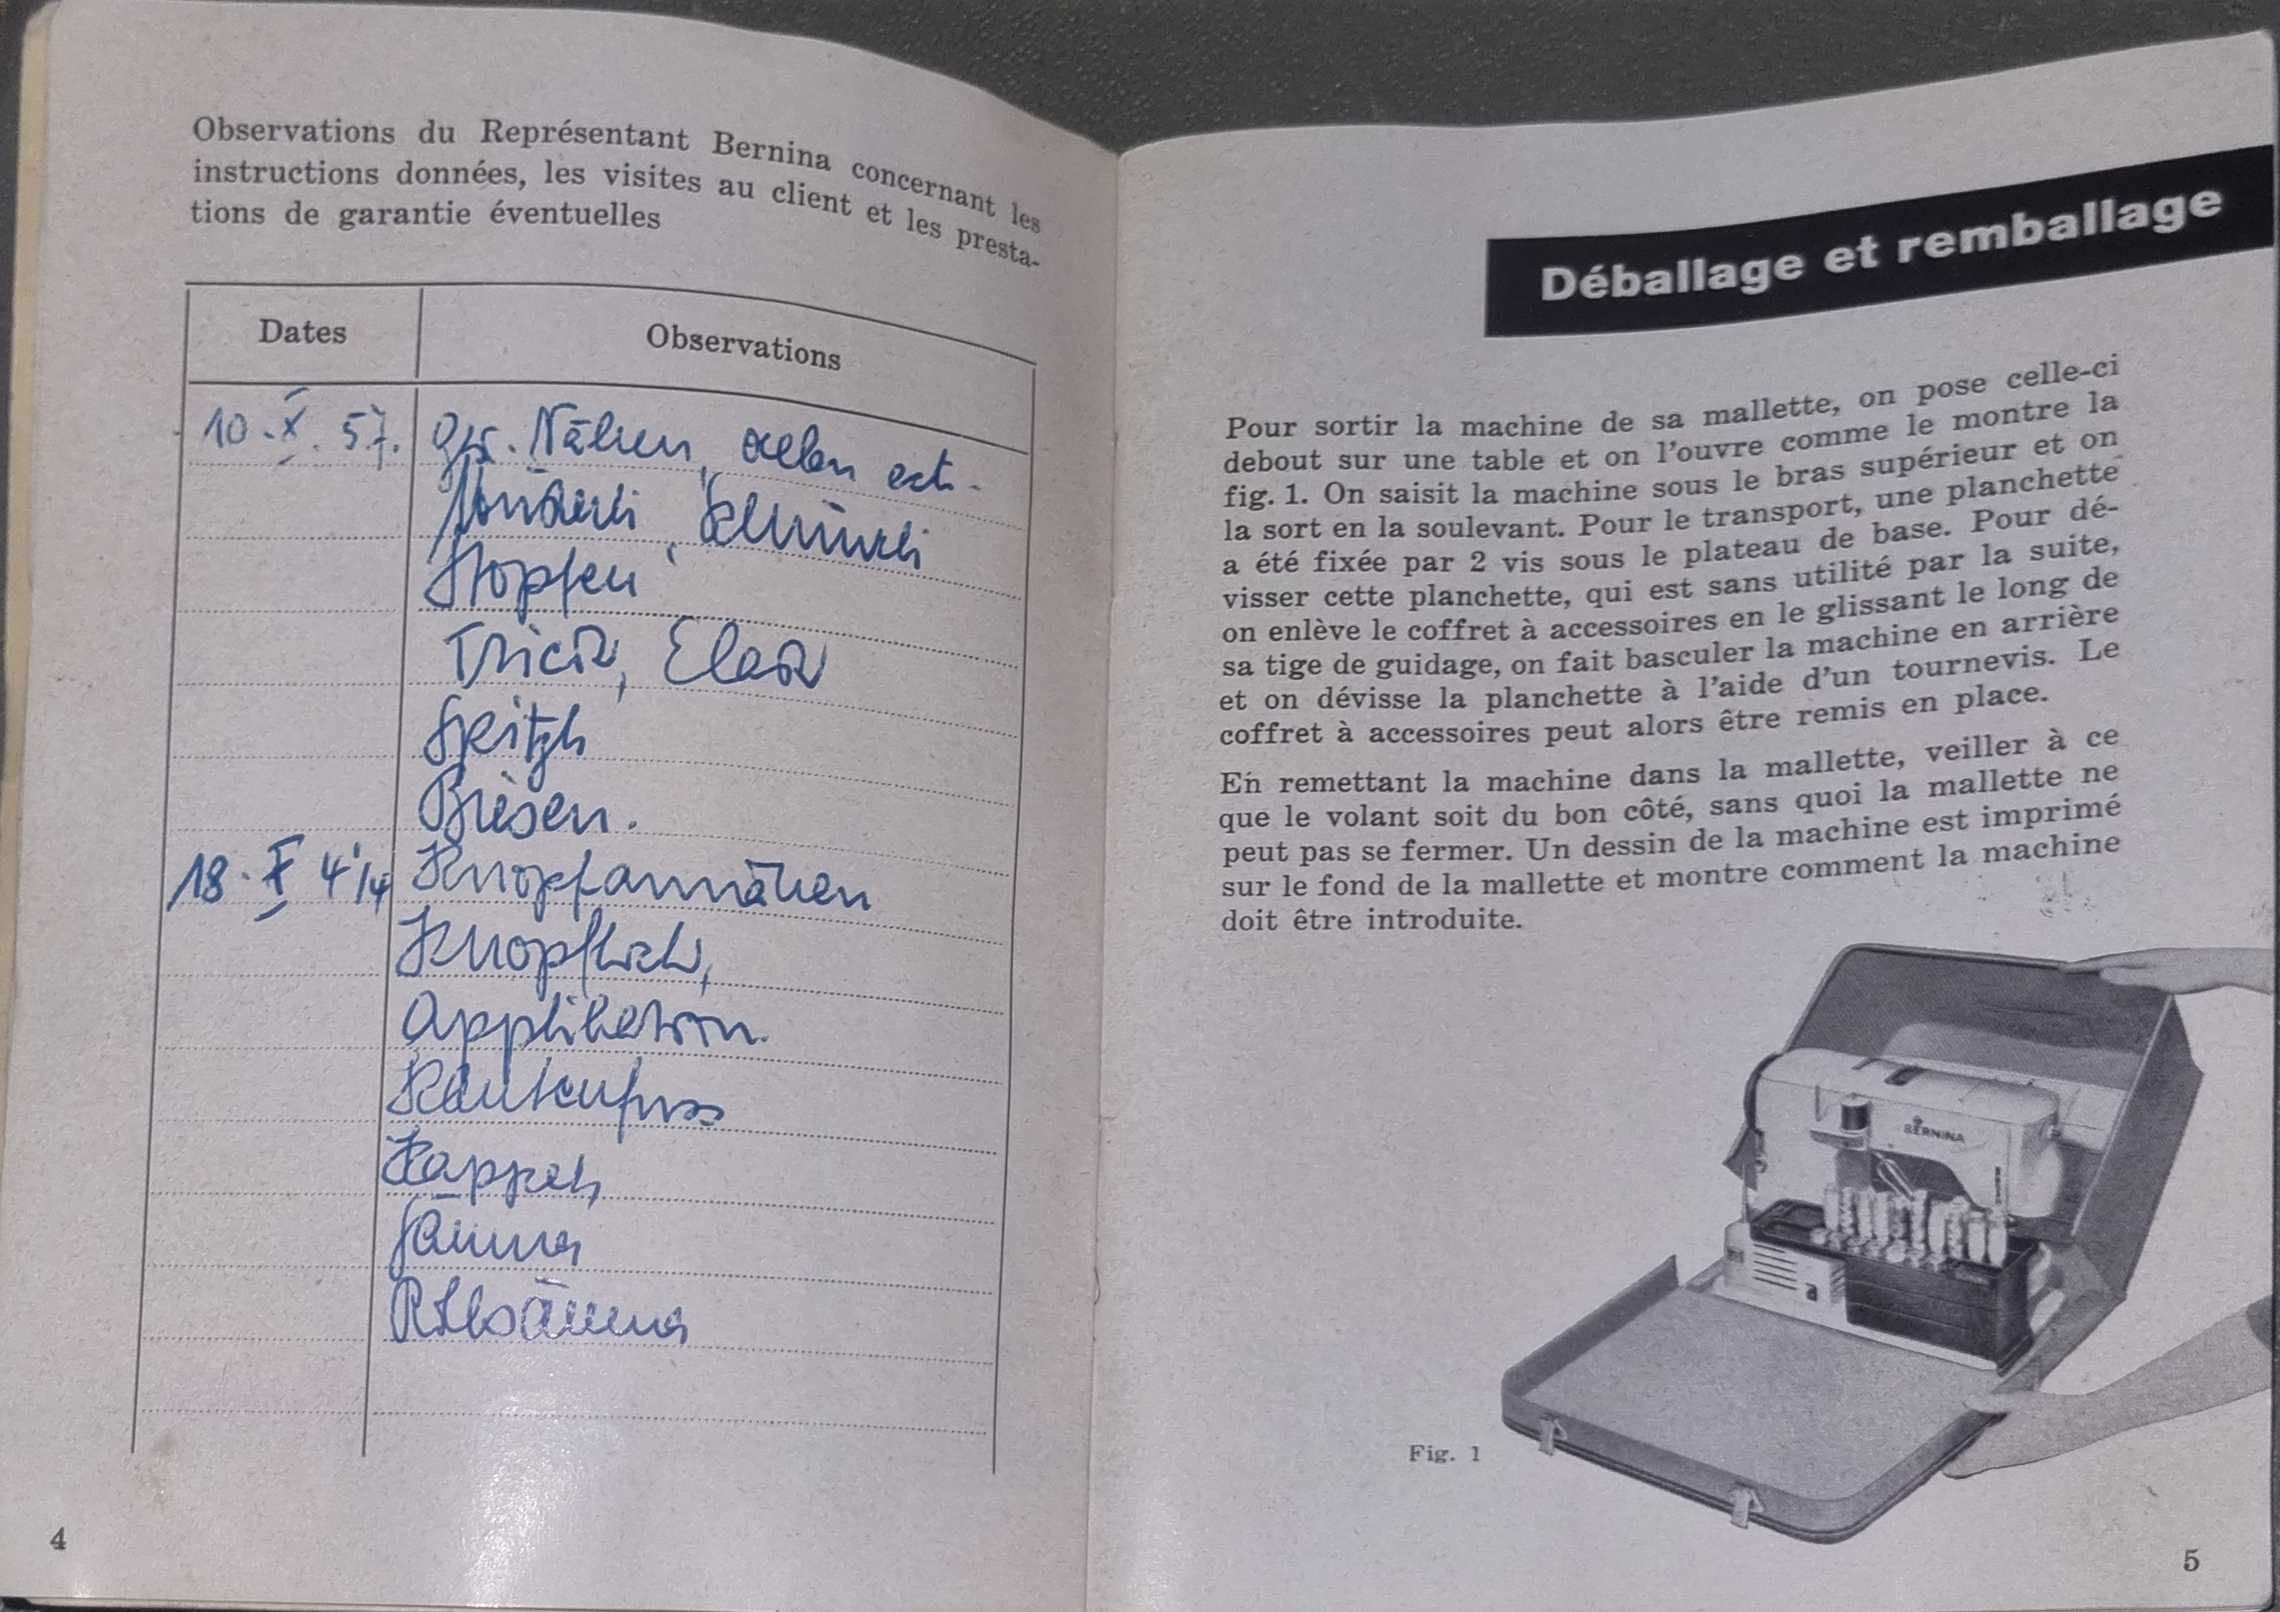 Observations du Représentant Bernina concernant les
instructions données, les visites au client et les presta-
tions de garantie éventuelles
Dates Observations
10. X. 57. Nähen,
Stopfen
Tricot, Elast
Spitzli
Biesen.
18. X 4 1/4 Knopfannähen
Knopfloch,
Applikation.
Kantenfuss
Kappen
Säumer
Rollsäumer
4
Déballage et remballage
Pour sortir la machine de sa mallette, on pose celle-ci
debout sur une table et on l'ouvre comme le montre la
fig. 1. On saisit la machine sous le bras supérieur et on
la sort en la soulevant. Pour le transport, une planchette
a été fixée par 2 vis sous le plateau de base. Pour dé-
visser cette planchette, qui est sans utilité par la suite,
on enlève le coffret à accessoires en le glissant le long de
sa tige de guidage, on fait basculer la machine en arrière
et on dévisse la planchette à l'aide d'un tournevis. Le
coffret à accessoires peut alors être remis en place.
En remettant la machine dans la mallette, veiller à ce
que le volant soit du bon côté, sans quoi la mallette ne
peut pas se fermer. Un dessin de la machine est imprimé
sur le fond de la mallette et montre comment la machine
doit être introduite.
BERNINA
a
Fig. 1
5